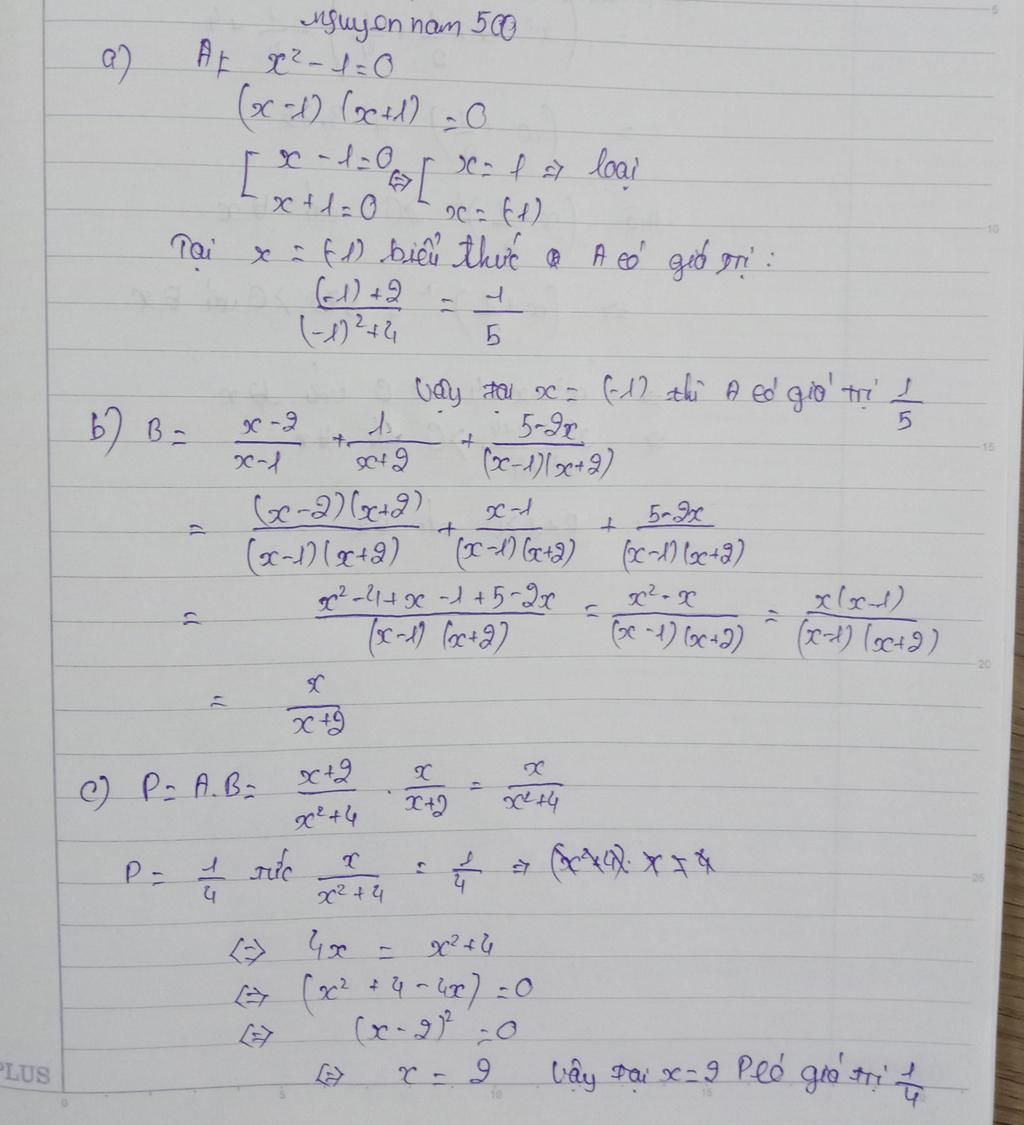 nguyonnam 500
a) At x² - 1 = 0
(x - 1) (x + 1) = 0
[ x - 1 = 0 ⇔ [ x = 1 ⇒ loại
x + 1 = 0 x = (-1)
Tại x = (-1) biểu thức A có giá trị :
((-1) + 2)/((-1)² + 4) = 1/5
Vậy tại x = (-1) thì A có giá trị 1/5
b) B = (x - 2)/(x - 1) + 1/(x + 2) + (5 - 2x)/((x - 1)(x + 2))
= ((x - 2)(x + 2))/((x - 1)(x + 2)) + (x - 1)/((x - 1)(x + 2)) + (5 - 2x)/((x - 1)(x + 2))
= (x² - 4 + x - 1 + 5 - 2x)/((x - 1)(x + 2)) = (x² - x)/((x - 1)(x + 2)) = (x(x - 1))/((x - 1)(x + 2))
= x/(x + 2)
c) P = A.B = (x + 2)/(x² + 4) . x/(x + 2) = x/(x² + 4)
P = 1/4 tức x/(x² + 4) = 1/4 ⇒
⇔ 4x = x² + 4
⇔ (x² + 4 - 4x) = 0
⇔ (x - 2)² = 0
⇔ x = 2 Vậy tại x = 2 P có giá trị 1/4
PLUS